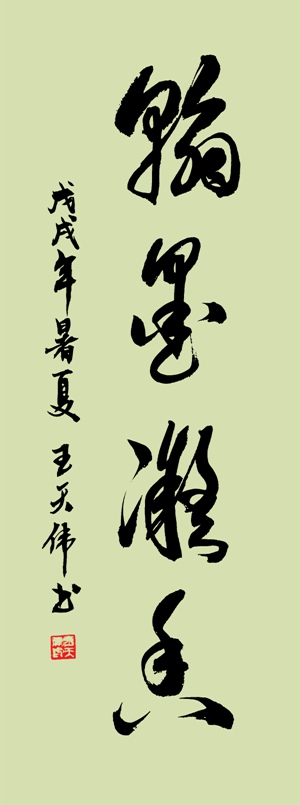 翰墨凝香
戊戌年暑夏 王天伟书